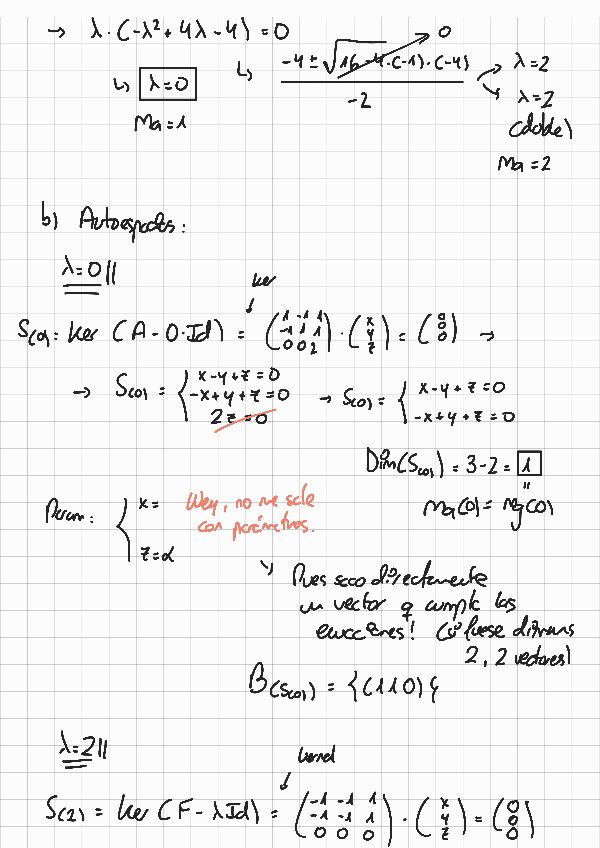 → λ·(-λ²+4λ-4)=0
↳ λ=0
Ma=1
↳ (-4±√(16-4·(-1)·(-4)))/-2 → 0
λ=2
λ=2
(doble)
Ma=2
b) Autoespacios:
λ=0||
ker
S(0) = Ker (A-0·Id) = (1 -1 1 / -1 1 1 / 0 0 2) · (x / y / z) = (0 / 0 / 0) →
→ S(0) = { x-y+z=0 / -x+y+z=0 / 2z=0 → S(0) = { x-y+z=0 / -x+y+z=0
Dim(S(0)) = 3-2 = 1
=
Ma(0) = Mg(0)
Param: { x= / z=α
Wey, no me sale
con parámetros.
↳ Pues saco directamente
un vector q cumpla las
ecuaciones! (si fuese dimens
2, 2 vectores)
B(S(0)) = {(1 1 0)}
λ=2||
kernel
S(2) = Ker (F-λId) = (-1 -1 1 / -1 -1 1 / 0 0 0) · (x / y / z) = (0 / 0 / 0)